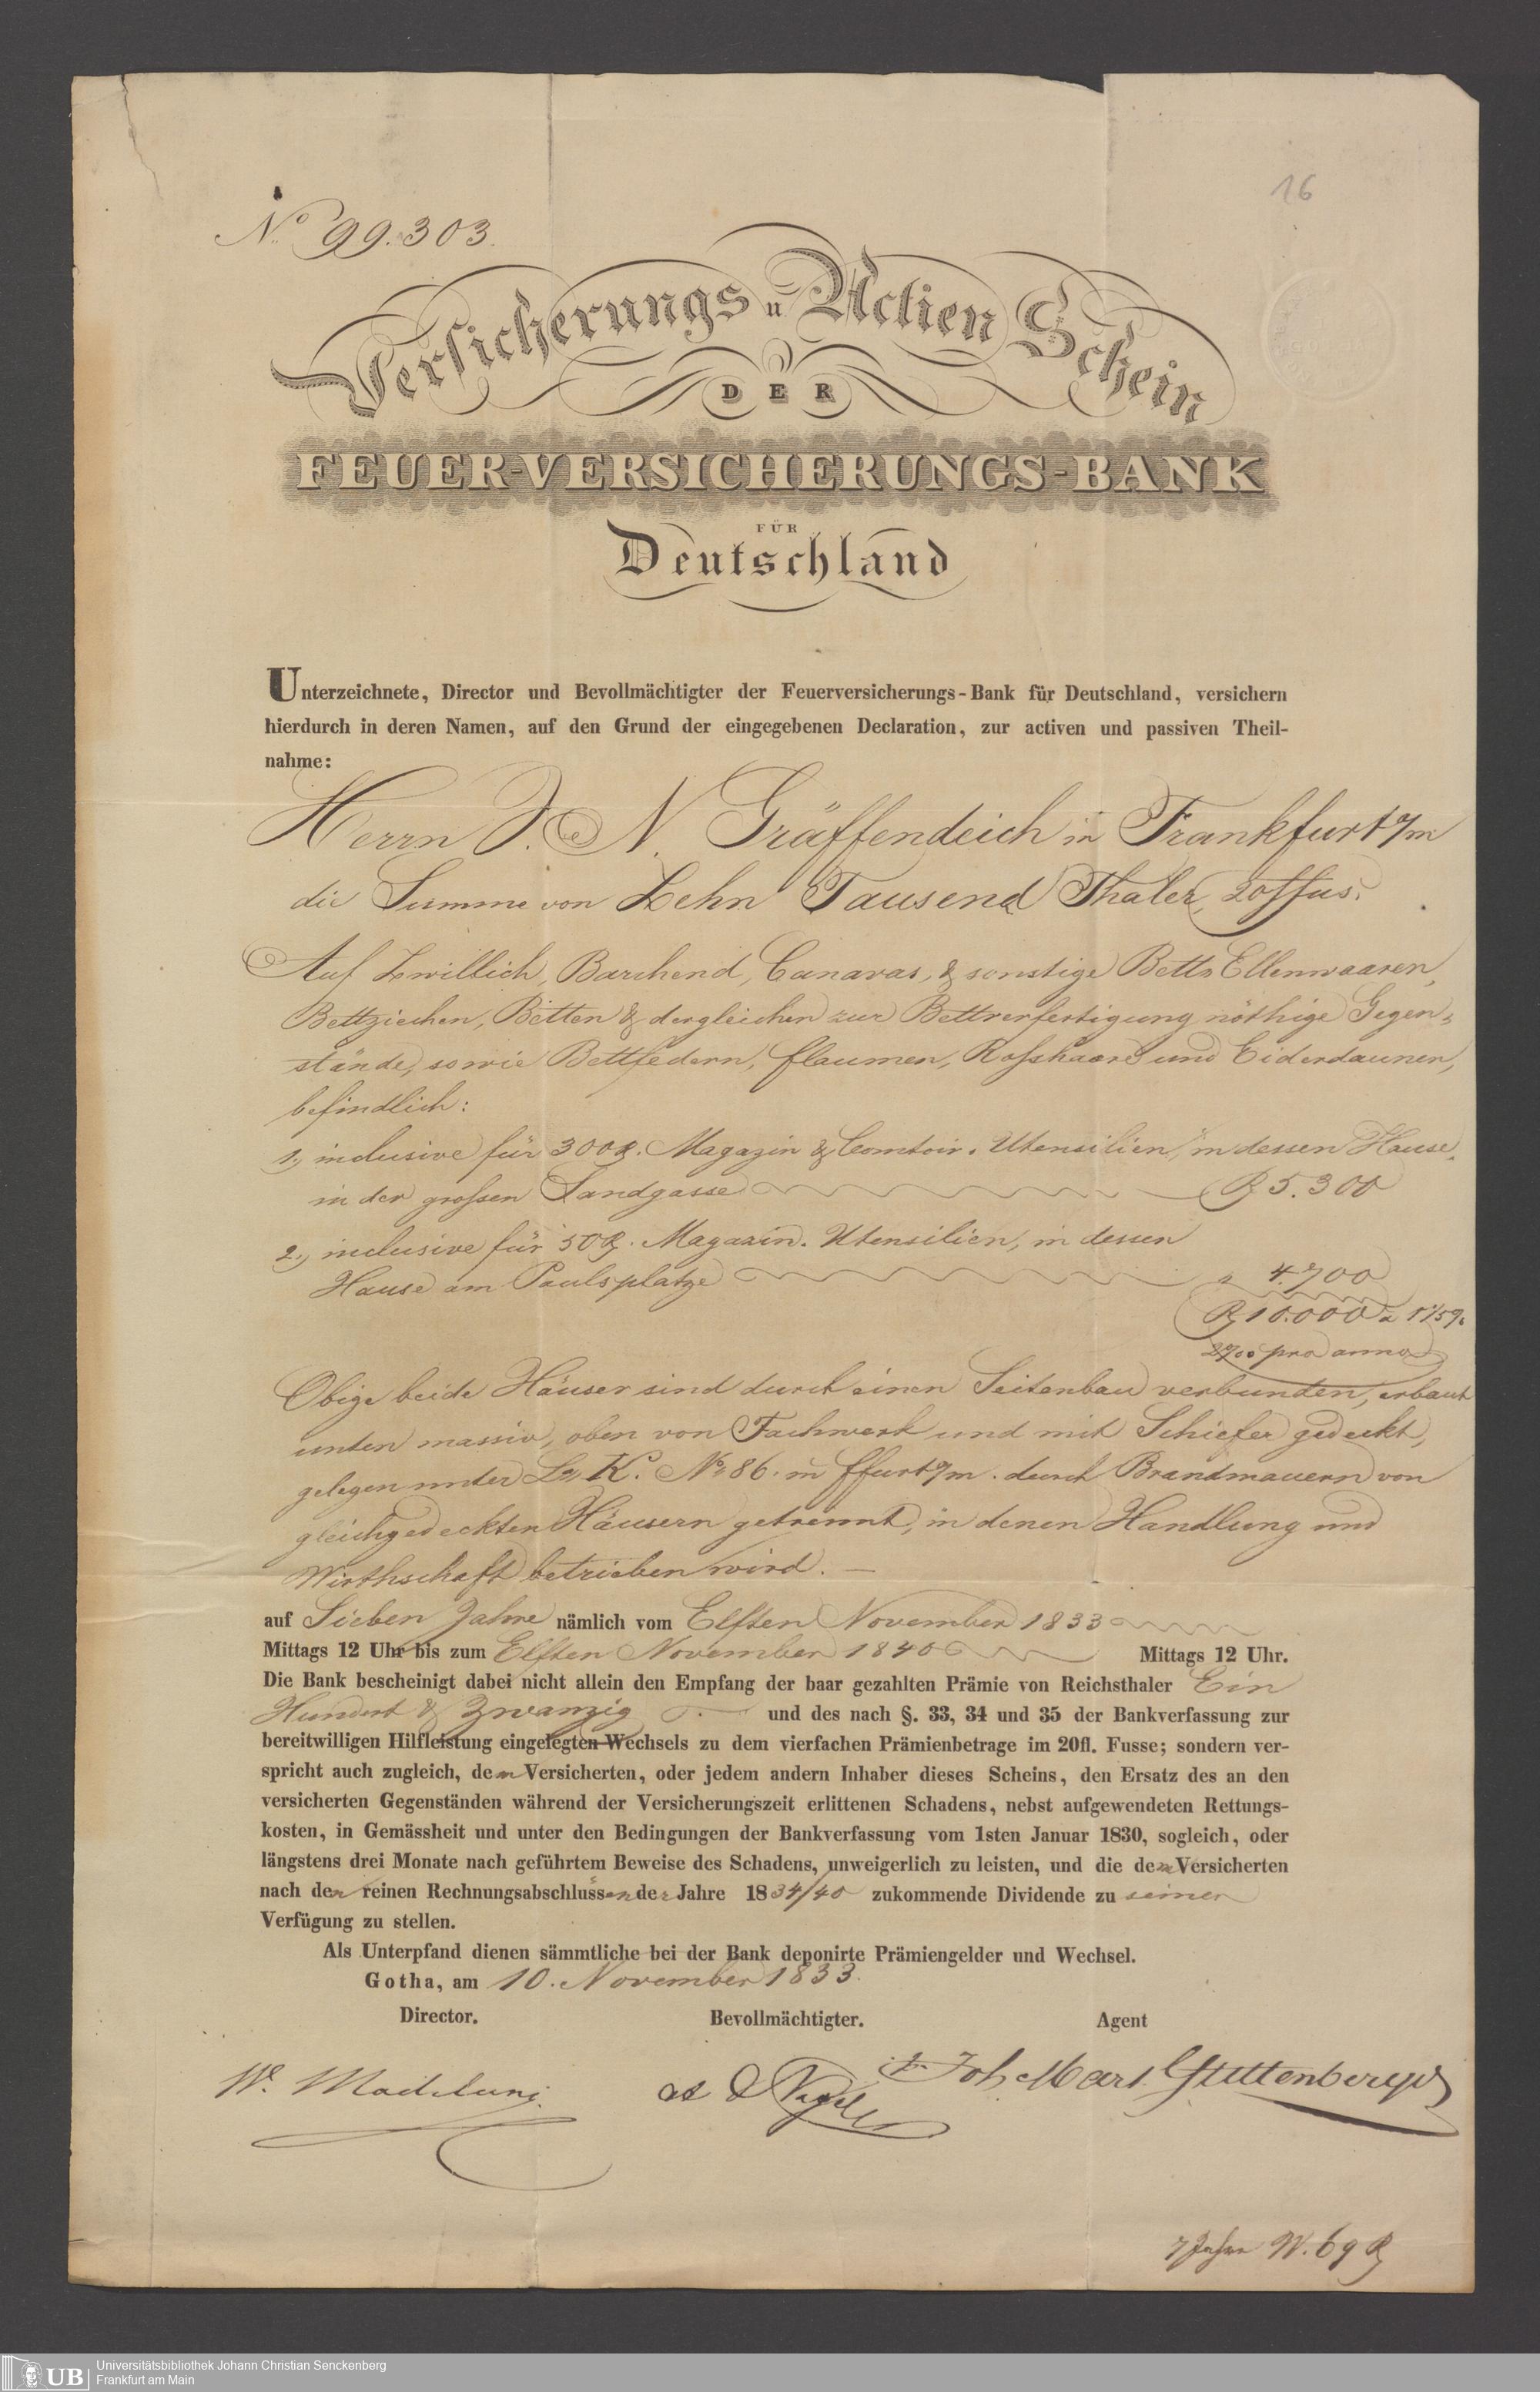 16
No 99.303.
Versicherungs u Actien Schein
DER
FEUER-VERSICHERUNGS-BANK
FÜR
Deutschland
Unterzeichnete, Director und Bevollmächtigter der Feuerversicherungs-Bank für Deutschland, versichern
hierdurch in deren Namen, auf den Grund der eingegebenen Declaration, zur activen und passiven Theil-
nahme:
Herrn J. N. Gräffendeich in Frankfurt a/m
die Summe von Zehn Tausend Thaler, 20ffus.
Auf Zwillich, Barchend, Canavas, & sonstige Bett Ellenwaaren,
Bettziechen, Betten & dergleichen zur Bettverfertigung nöthige Gegen-
stände, sowie Bettfedern, flaumen, Rosshaare und Eiderdaunen,
befindlich:
1., inclusive für 300 R. Magazin & Comtoir-Utensilien, in dessen Hause,
in der grossen Sandgasse R 5.300
2., inclusive für 50 R. Magazin-Utensilien, in dessen
Hause am Paulsplatze " 4.700
R 10.000 a
pro anno
Obige beide Häuser sind durch einen Seitenbau verbunden, erbaut
unten massiv, oben von Fachwerk und mit Schiefer gedeckt,
gelegen unter Lr K. No 86. in ffurt a/m. durch Brandmauern von
gleichgedeckten Häusern getrennt, in denen Handlung und
Wirthschaft betrieben wird. —
auf Sieben Jahre nämlich vom Elften November 1833
Mittags 12 Uhr bis zum Elften November 1840 Mittags 12 Uhr.
Die Bank bescheinigt dabei nicht allein den Empfang der baar gezahlten Prämie von Reichsthaler Ein
Hundert & Zwanzig und des nach §. 33, 34 und 35 der Bankverfassung zur
bereitwilligen Hilfleistung eingelegten Wechsels zu dem vierfachen Prämienbetrage im 20fl. Fusse; sondern ver-
spricht auch zugleich, dem Versicherten, oder jedem andern Inhaber dieses Scheins, den Ersatz des an den
versicherten Gegenständen während der Versicherungszeit erlittenen Schadens, nebst aufgewendeten Rettungs-
kosten, in Gemässheit und unter den Bedingungen der Bankverfassung vom 1sten Januar 1830, sogleich, oder
längstens drei Monate nach geführtem Beweise des Schadens, unweigerlich zu leisten, und die dem Versicherten
nach den reinen Rechnungsabschlüssen der Jahre 1834/40 zukommende Dividende zu seiner
Verfügung zu stellen.
Als Unterpfand dienen sämmtliche bei der Bank deponirte Prämiengelder und Wechsel.
Gotha, am 10. November 1833.
Director. Bevollmächtigter. Agent
W. Madelung. Joh Mart Gstuttenberger
7 Jahre W. 69 R
UB Universitätsbibliothek Johann Christian Senckenberg
Frankfurt am Main